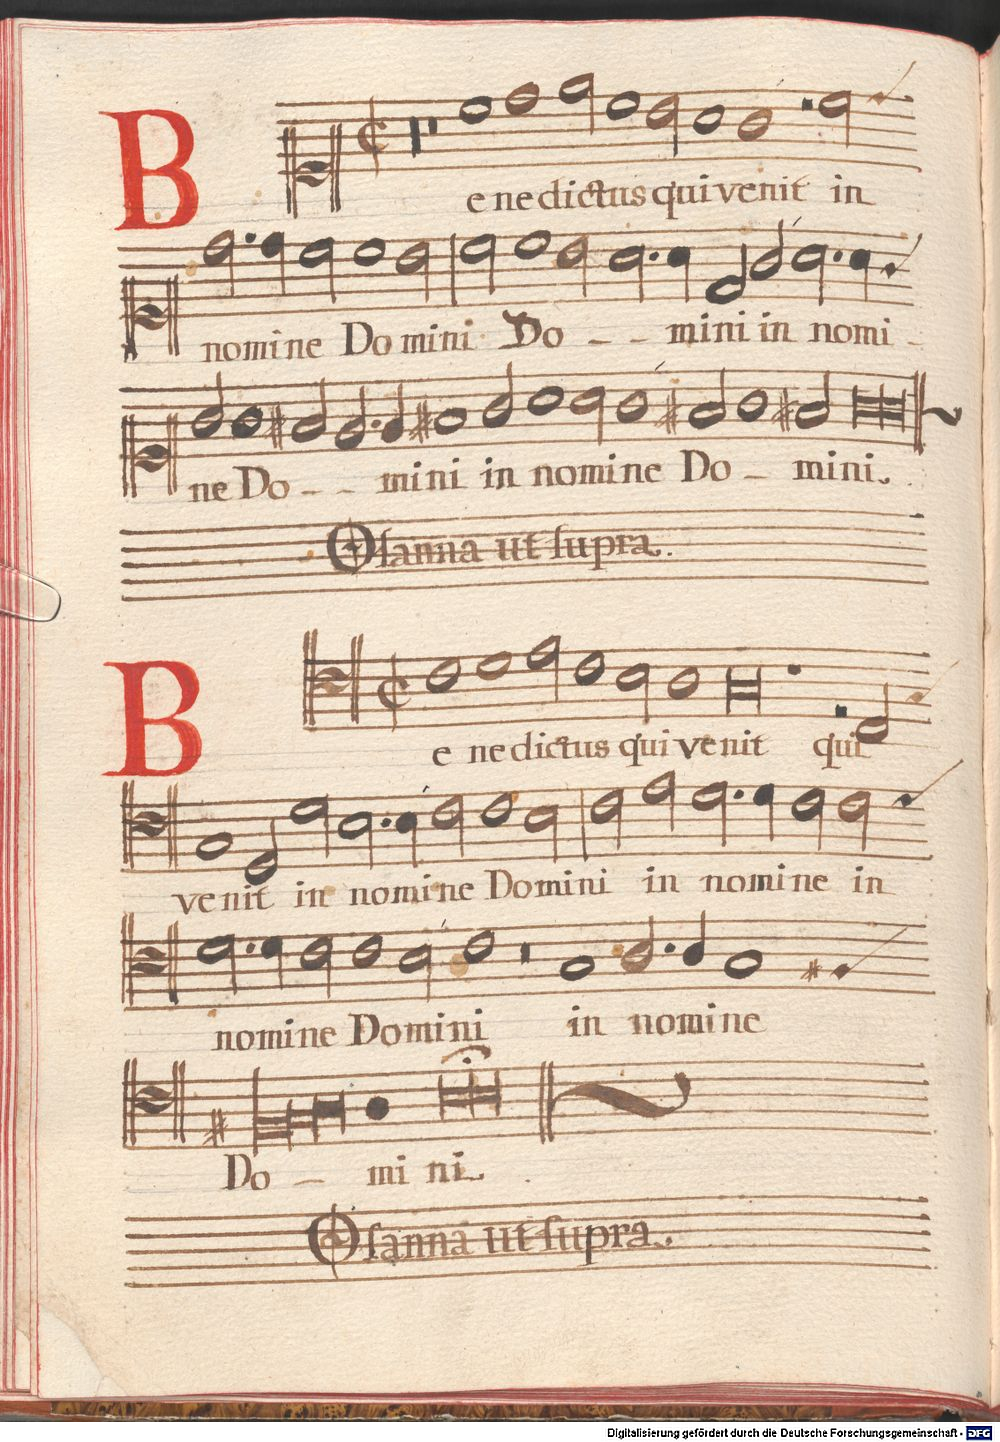 B
e ne dictus qui venit in
nomine Domini Do - - mini in nomi -
ne Do - - mini in nomine Do - mini.
Osanna ut supra.
B
e ne dictus qui venit qui
venit in nomine Domini in nomine in
nomine Domini in nomine
Do - mini.
Osanna ut supra.
Digitalisierung gefördert durch die Deutsche Forschungsgemeinschaft - DFG